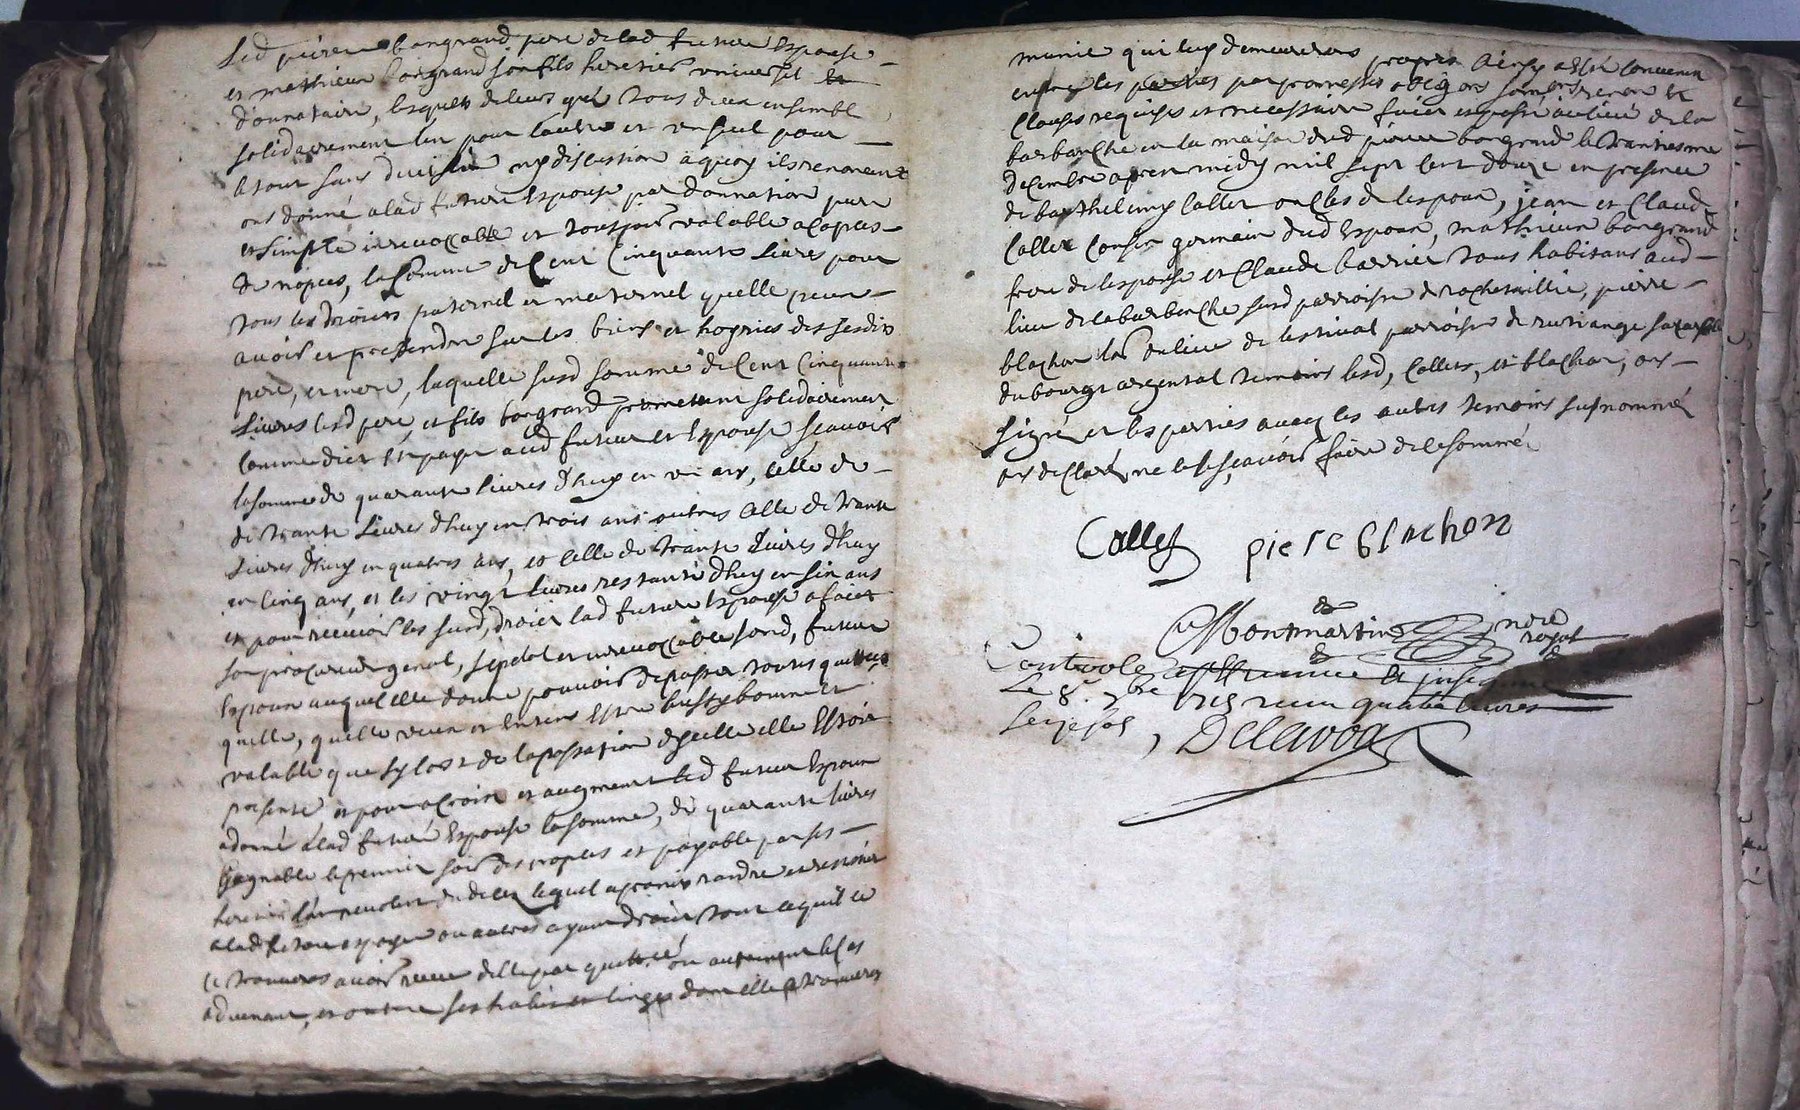 Led pierre bongrand pere de lad future Espouse
et mathieu bongrand son fils heretier universel et
donnataire, lesquels de leurs gré tous deux ensemble
solidairement lun pour lautre et un seul pour
le tout sans division ny discution a quoy ils renoncent
ont donné a lad future Espouse par donnation pure
et simple irrevocable et tousjours valable a cause
de nopces, la somme de Cent Cinquante Livres pour
tous les droicts paternel et maternel quelle peut
avoir et pretendre sur les biens et hoyries des sesdits
pere, et mere, laquelle susd somme de Cent Cinquante
Livres lesd pere, et fils bongrand promettent solidairement
comme dict est payer aud futeur et Espouse scavoir
la somme de quarante livres dhuy en un an, celle de
de trante Livres dhuy en trois ans outres celle de trante
Livres dhuy en quatres ans, et celle de trante Livres dhuy
en cinq ans, et les vingt livres restante dhuy en six ans
et pour recevoir les susd, droict lad future Espouse a faict
son procureur general, special et irrevocable sond, futeur
Espoux auquel elle donne pouvoir de passer toutes quittes
quelle, quelle veux et entens Estre aussy bonne et
valable que sy lors de la passation dycelle elle Estoit
presente et pour acroix et augment led futeur Espoux
a donné a lad future Espouse la somme, de quarante livres
gagnable le premier soir des nopces et payable par ses
heretiers lan revolut du deces lequel a promis randre et restituer
a lad future espouse ou autres ayant droict tout ce quil ce
ce trouveras avoir receu delle par quittce ou autrement le cas
advenant, et outre ses habits et linges dont elle se trouveras
munie qui luy demeureront propres Ainsy a esté convenu
entre les parties par promesses obligons soumons renon et
Clauses requises et necessaire faict et passé au lieu de la
barbanche en la maison dud pierre bongrand le trantiesme
decembre apres midy mil sept cent douze en presence
de barthelemy Callet oncles de lespoux, jean et Claude
Callet Cousin germain dud Espoux, mathieu bongrand
frere de lespouse et Claude barrier tous habitans aud
lieu de la barbanche susd parroisse de rochetaillie, pierre
blachon du lieu de lestival parroisse de rutiange
du bourgt argental temoins lesd, Callets, et blachon, ont
signé et les parties avecq les autres temoins susnommé
ont declaré ne le scavoir faire de ce sommé
Callet pierc blachon
Montmartin nore
royal
Controle et
Le 8
receu quatre livres
seize sols, Delavoa